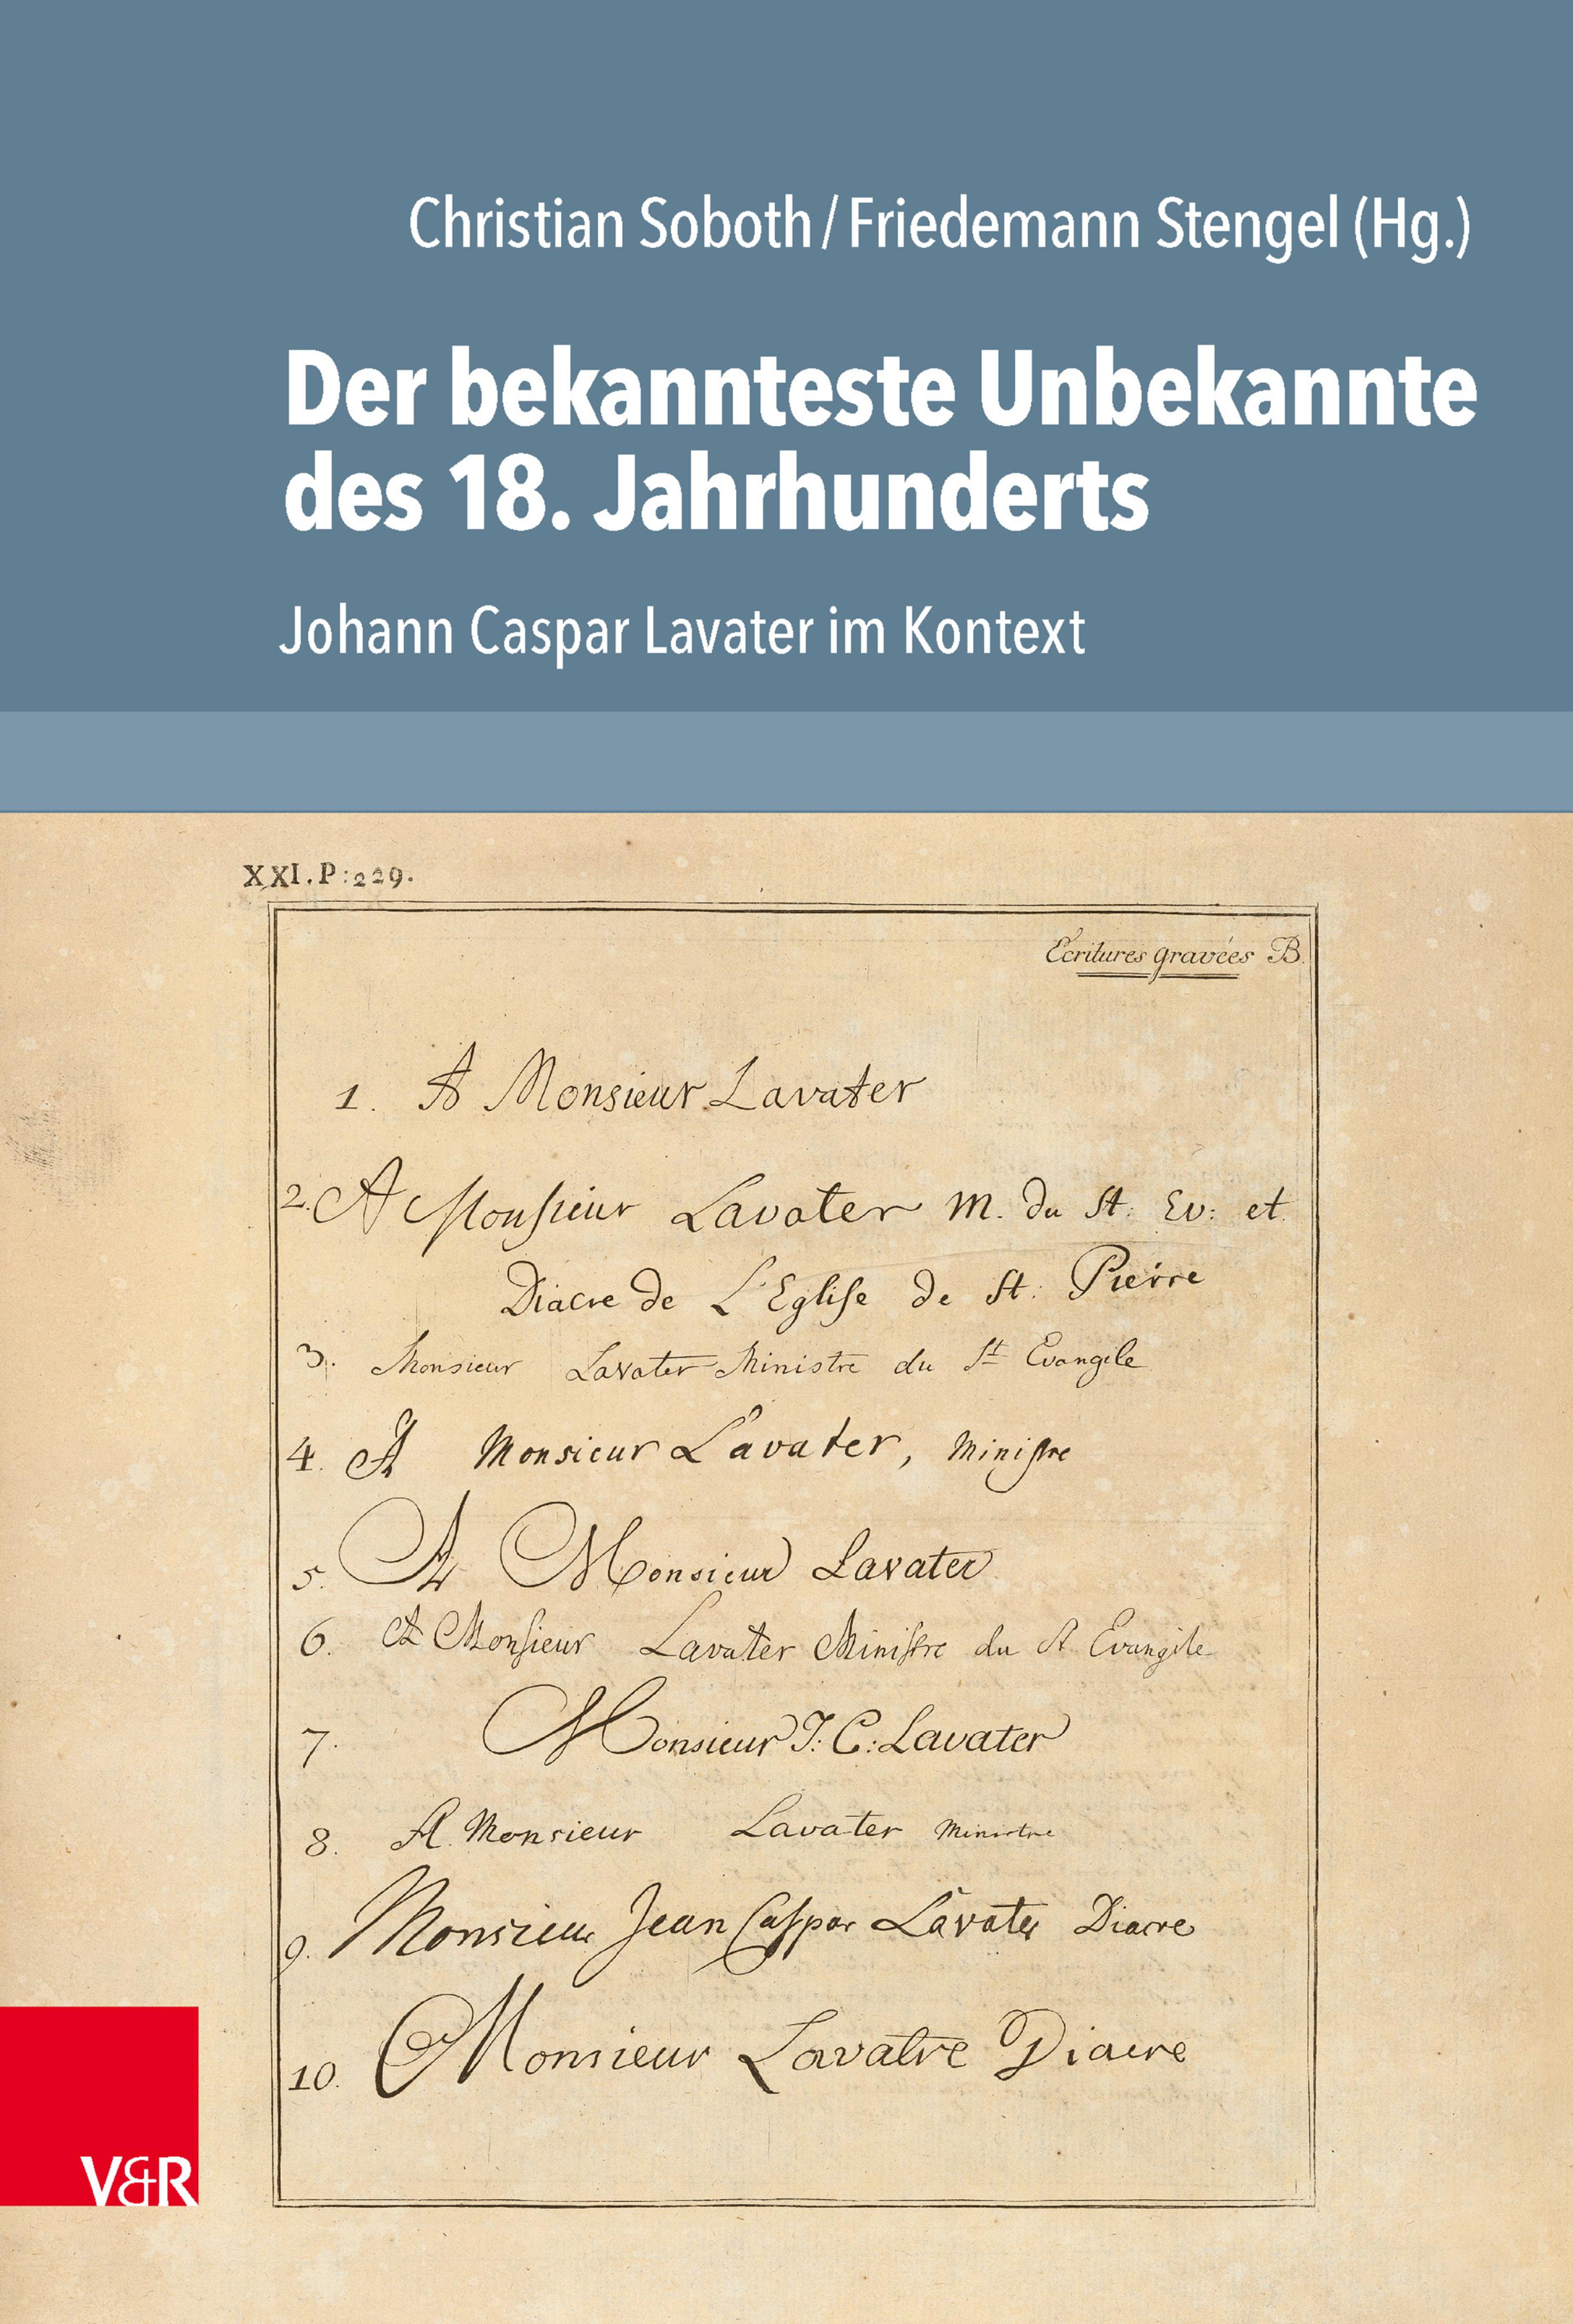 Christian Soboth / Friedemann Stengel (Hg.)
Der bekannteste Unbekannte
des 18. Jahrhunderts
Johann Caspar Lavater im Kontext
XXI. P: 229.
Ecritures gravées B.
1. A Monsieur Lavater
2. A Monsieur Lavater M. du St. Ev: et
Diacre de L'Eglise de St. Pierre
3. Monsieur Lavater Ministre du St Evangile
4. A Monsieur Lavater, Ministre
5. A Monsieur Lavater
6. A Monsieur Lavater Ministre du St Evangile
7. Monsieur J: C: Lavater
8. A Monsieur Lavater Ministre
9. Monsieur Jean Caspar Lavater Diacre
10. Monsieur Lavatre Diacre
V&R